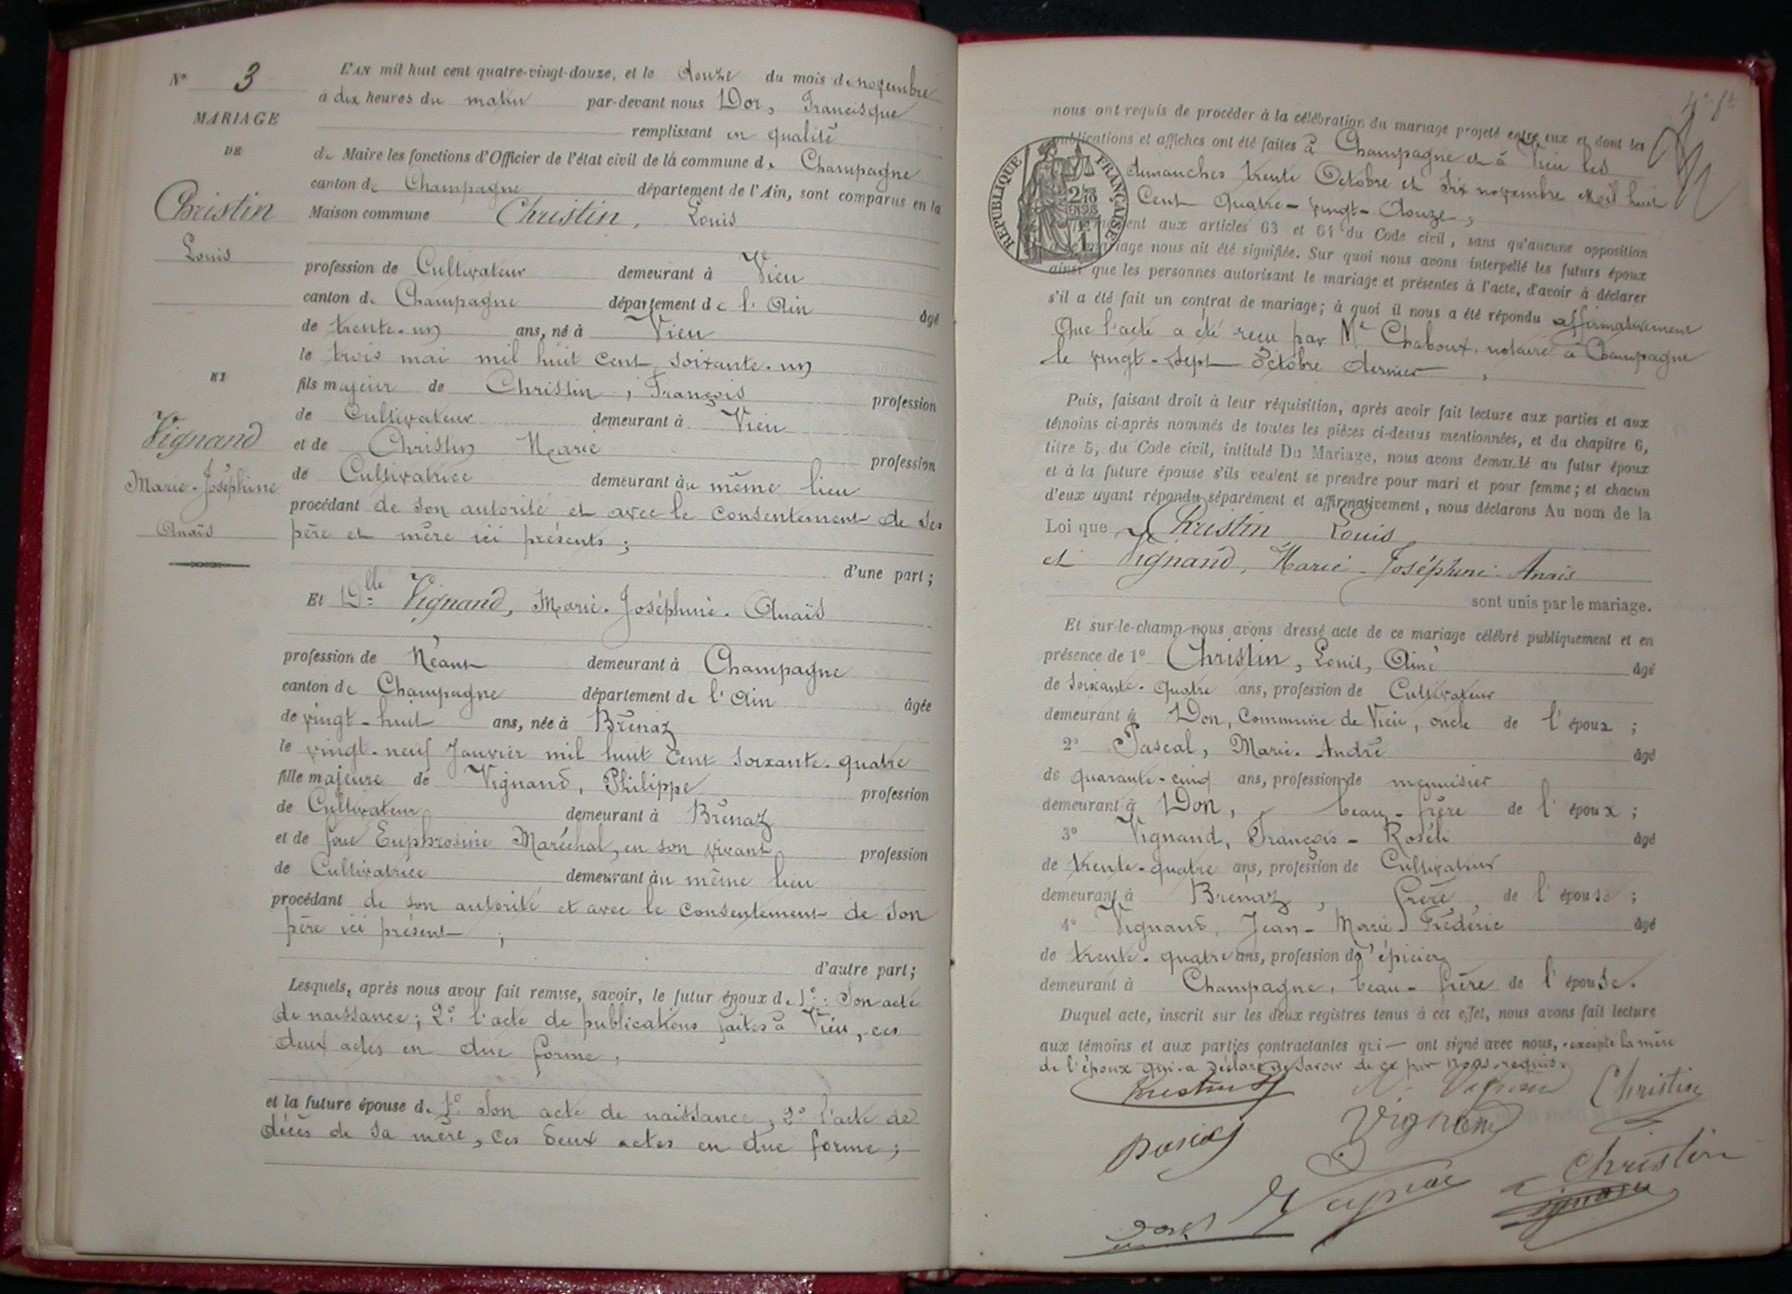 N° 3
MARIAGE
DE
Christin
Louis
ET
Vignand
Marie-Joséphine
Anaïs
L'AN mil huit cent quatre-vingt-douze, et le douze du mois de novembre
à dix heures du matin par-devant nous Dor, Francisque
remplissant en qualité
de Maire les fonctions d'Officier de l'état civil de la commune de Champagne
canton de Champagne département de l'Ain, sont comparus en la
Maison commune Christin, Louis
profession de Cultivateur demeurant à Vieu
canton de Champagne département de l'Ain âgé
de trente-un ans, né à Vieu
le trois mai mil huit cent soixante-un
fils majeur de Christin, François profession
de Cultivateur demeurant à Vieu
et de Christin Marie profession
de Cultivatrice demeurant au même lieu
procédant de son autorité et avec le consentement de ses
père et mère ici présents;
d'une part;
Et Dlle Vignand, Marie-Joséphine-Anaïs
profession de Néant demeurant à Champagne
canton de Champagne département de l'Ain âgée
de vingt-huit ans, née à Brénaz
le vingt-neuf Janvier mil huit Cent soixante-quatre
fille majeure de Vignand, Philippe profession
de Cultivateur demeurant à Brénaz
et de feue Euphrosine Maréchal, en son vivant profession
de Cultivatrice demeurant au même lieu
procédant de son autorité et avec le consentement de son
père ici présent;
d'autre part;
Lesquels, après nous avoir fait remise, savoir, le futur époux de 1°: Son acte
de naissance; 2° l'acte de publications faites à Vieu, ces
deux actes en due forme,
et la future épouse de 1° Son acte de naissance, 2° l'acte de
décès de sa mère, ces deux actes en due forme;
nous ont requis de procéder à la célébration du mariage projeté entre eux et dont les
publications et affiches ont été faites à Champagne et à Vieu les
dimanches trente Octobre et six novembre mil huit
Cent quatre-vingt-douze,
RÉPUBLIQUE FRANÇAISE
aux articles 63 et 64 du Code civil, sans qu'aucune opposition
mariage nous ait été signifiée. Sur quoi nous avons interpellé les futurs époux
ainsi que les personnes autorisant le mariage et présentes à l'acte, d'avoir à déclarer
s'il a été fait un contrat de mariage; à quoi il nous a été répondu affirmativement
Que l'acte a été reçu par Me Chaboux, notaire à Champagne
le vingt-sept Octobre dernier,
Puis, faisant droit à leur réquisition, après avoir fait lecture aux parties et aux
témoins ci-après nommés de toutes les pièces ci-dessus mentionnées, et du chapitre 6,
titre 5, du Code civil, intitulé Du Mariage, nous avons demandé au futur époux
et à la future épouse s'ils veulent se prendre pour mari et pour femme; et chacun
d'eux ayant répondu séparément et affirmativement, nous déclarons Au nom de la
Loi que Christin Louis
et Vignand, Marie-Joséphine-Anaïs
sont unis par le mariage.
Et sur-le-champ nous avons dressé acte de ce mariage célébré publiquement et en
présence de 1° Christin, Louis, Aimé âgé
de soixante-quatre ans, profession de Cultivateur
demeurant à Don, Commune de Vieu, oncle de l'époux;
2° Pascal, Marie-André âgé
de quarante-cinq ans, profession de menuisier
demeurant à Don, beau-frère de l'époux;
3° Vignand, François-Roséli âgé
de trente-quatre ans, profession de Cultivateur
demeurant à Brénaz, frère, de l'épouse;
4° Vignand, Jean-Marie-Frédéric âgé
de trente-quatre ans, profession d'épicier
demeurant à Champagne, beau-frère de l'épouse.
Duquel acte, inscrit sur les deux registres tenus à cet effet, nous avons fait lecture
aux témoins et aux parties contractantes qui — ont signé avec nous, excepté la mère
de l'époux qui a déclaré ne savoir de ce par nous requis.
Christin
Vignand
Christin